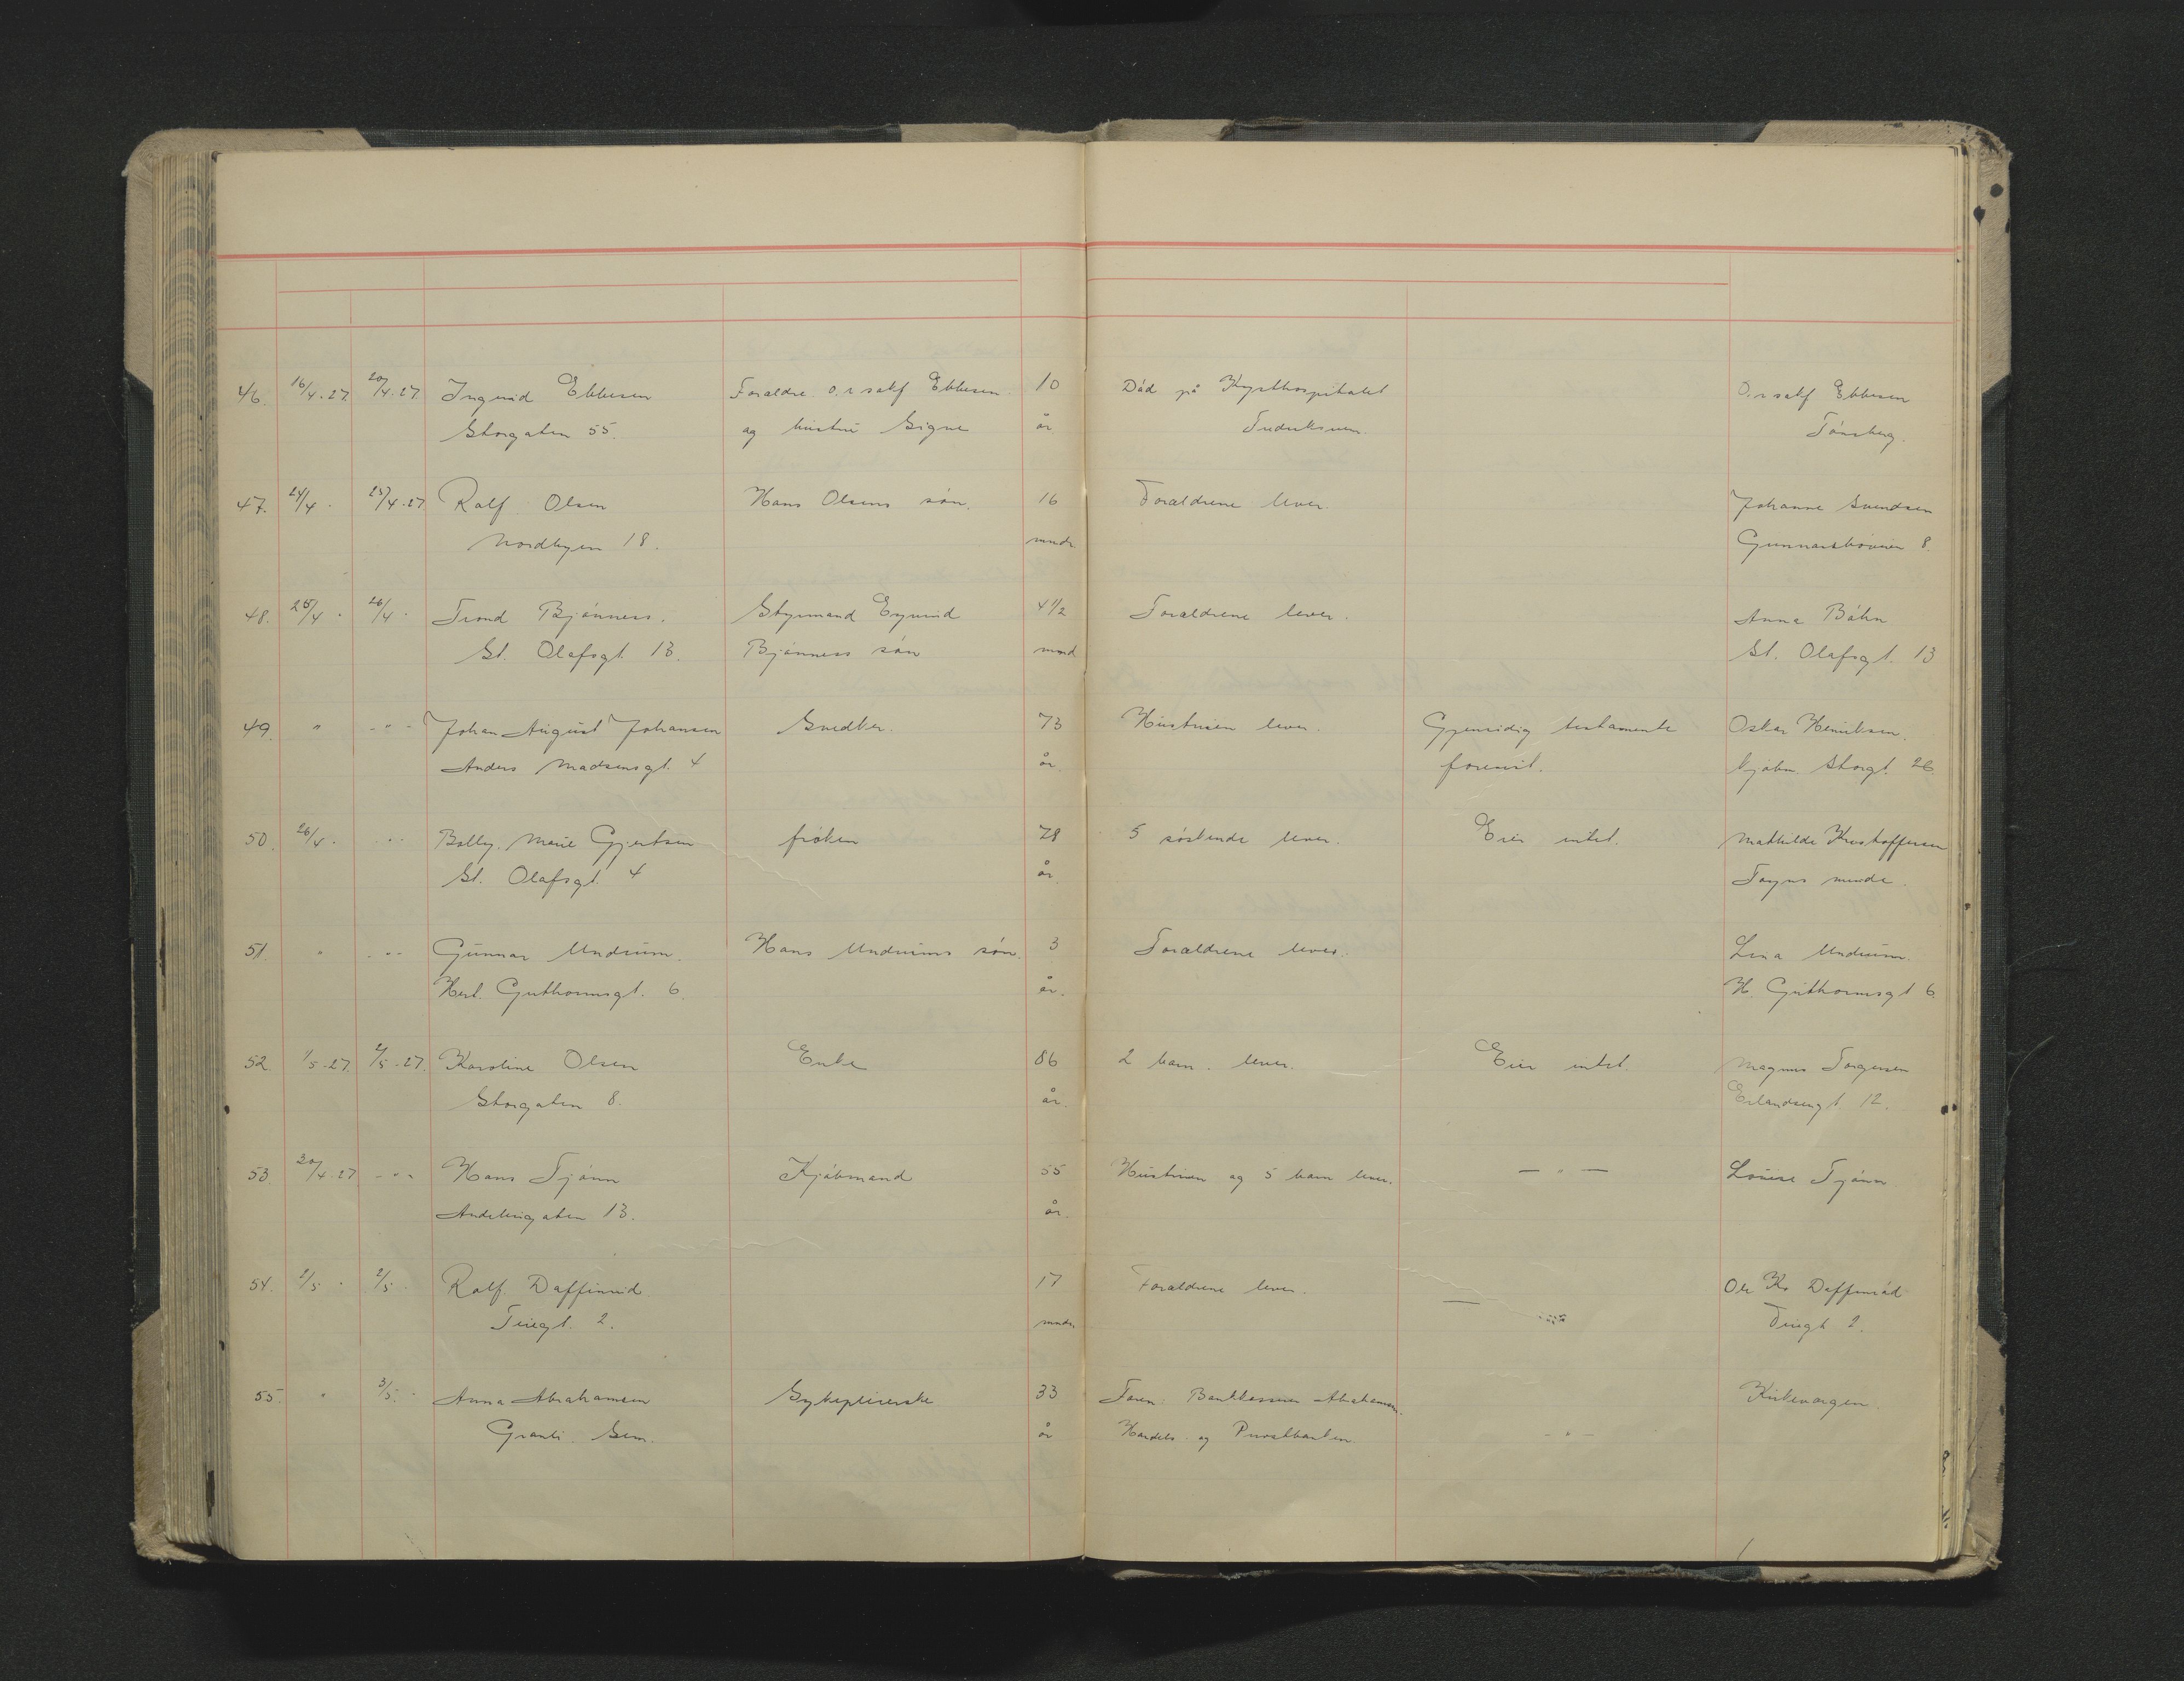 46. 16/4.27. 20/4.27 Ingrid Ebbesen Forældre o.r.sakf Ebbesen 10 Død på Kysthospitalet O.r.sakf Ebbesen
Storgaten 55. og hustru Signe år Fredriksvern. Tønsberg.
47. 24/4 . 25/4.27 Rolf Olsen Hans Olsens søn. 16 Forældrene lever. Johanne Svendsen
Nordbyen 18. mndr 8.
48. 25/4 . 26/4 . Trond Bjønness. Styrmand Eyvind 4 1/2 Forældrene lever. Anna Bøhn
St. Olafsgt. 13. Bjønness søn mnd St. Olafsgt. 13
49. " - " - Johan August Johansen Snedker. 73 Hustruen lever. Gjensidig testamente Oskar Henriksen.
Anders Madsensgt. 4 år forevist. kjøbm. Storgt. 26.
50. 26/4 . - " - Bolly Marie Gjertsen frøken 78 5 søskende lever. Eier intet. Mathilde Kristoffersen
St. Olafsgt. 4 år.
51. " - " - Gunnar Undrum. Hans Undrums søn. 3 Forældrene lever. Lina Undrum.
Herl. Guthormsgt. 6. år. H. Guthormsgt 6.
52. 1/5.27. 2/5.27. Karoline Olsen Enke 86 2 barn lever. Eier intet. Magnus Torgersen
Storgaten 8. år. Erlandsengt 12.
53. 30/4.27 - " - Hans Tjønn Kjøbmand 55 Hustruen og 5 barn lever. — " — Louise Tjønn
13. år.
54. 2/5 . 2/5 . Rolf Daffinrud 17 Forældrene lever. — Ole Kr
2. mndr. 2.
55. " 3/5. Anna Abrahamsen Sykepleierske 33 Faren: Bankkasserer Abrahamsen. Kirkevergen.
år Handels og Privatbanken. - " -